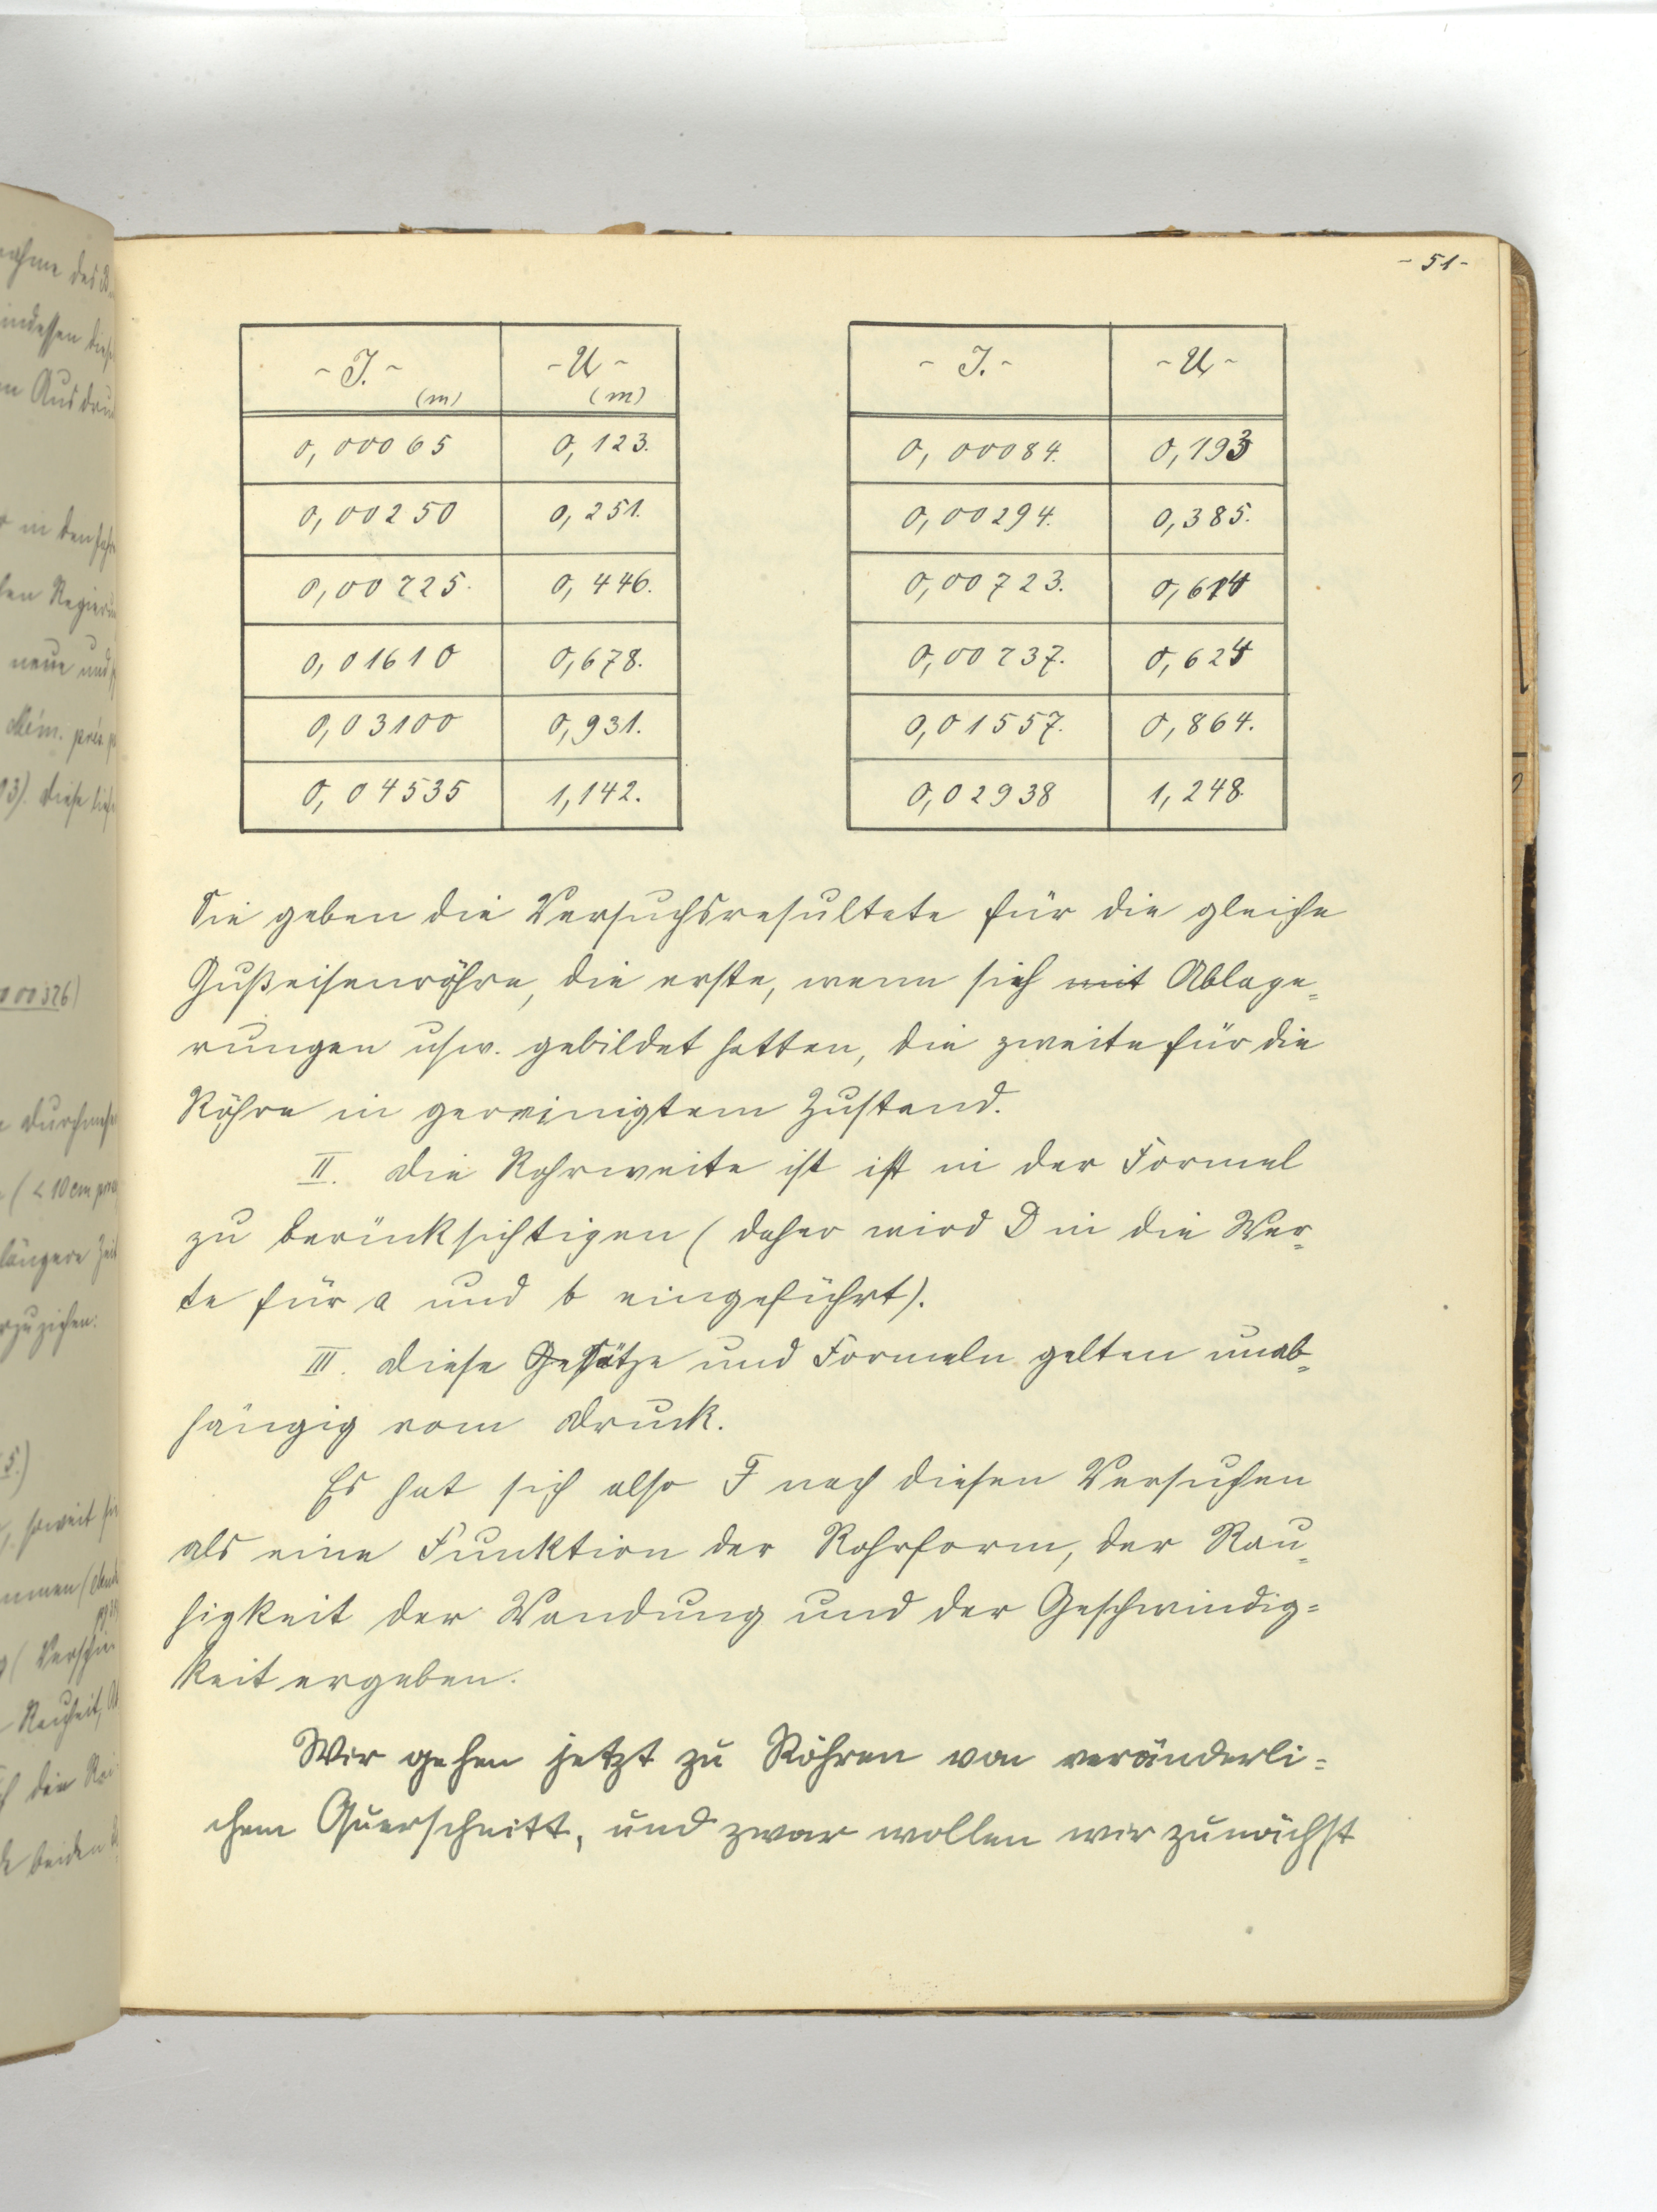 - 51 -
- J. - (m) - U - (m)
0,00065 0,123.
0,00250 0,251.
0,00225. 0,446.
0,01610 0,678.
0,03100 0,931.
0,04535 1,142.
- J. - - U -
0,00084. 0,193
0,00294. 0,385.
0,00723. 0,614
0,00737. 0,624
0,01557. 0,864.
0,02938 1,248.
Sie geben die Versuchsresultate für die gleiche
Gußeisenröhre, die erste, wenn sich mit Ablage=
rungen usw. gebildet hatten, die zweite für die
Röhre in gereinigtem Zustand.
II. Die Rohrweite ist ist in der Formel
zu berücksichtigen (daher wird D in die Wer=
te für a und b eingeführt).
III. Diese Gesätze und Formeln gelten unab=
hängig vom Druck.
Es hat sich also F nach diesen Versuchen
als eine Funktion der Rohrform, der Rau=
higkeit der Wandung und der Geschwindig=
keit ergeben.
Wir gehen jetzt zu Röhren von veränderli=
chem Querschnitt, und zwar wollen wir zunächst